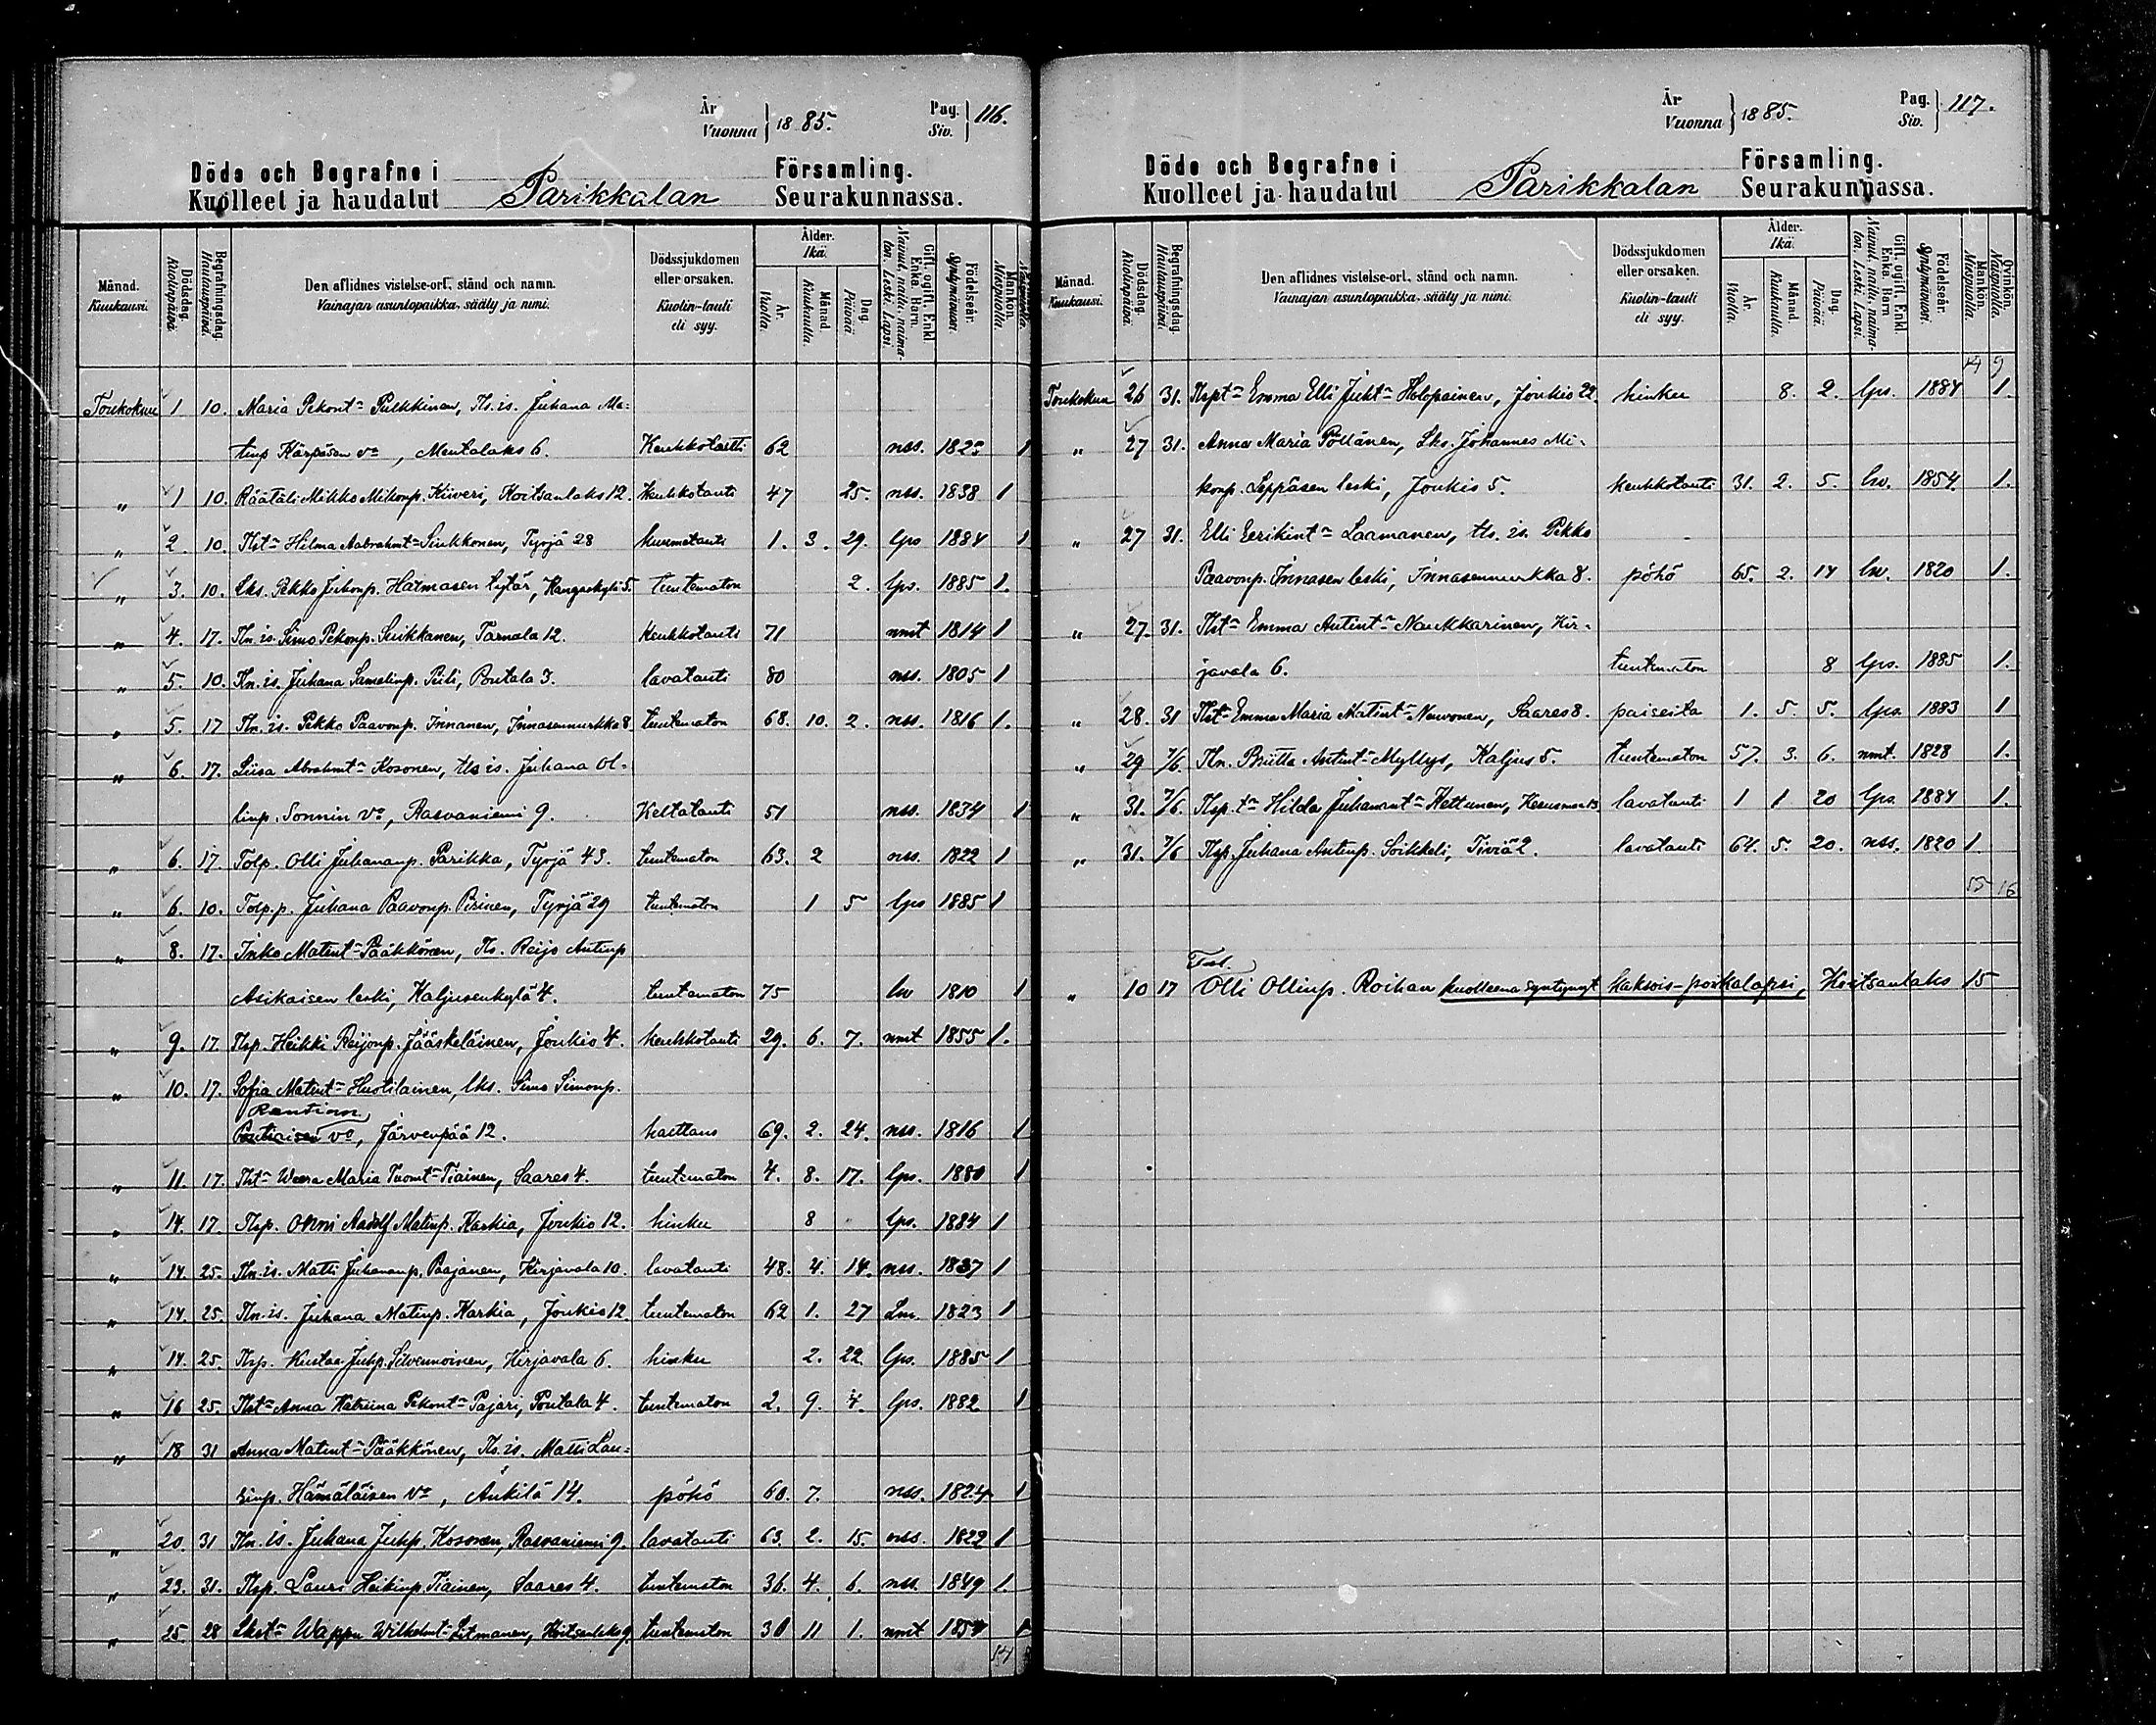 År
Vuonna } 1885.
Pag.
Siv. } 116.
Döda och Begrafne i Församling.
Kuolleet ja haudatut Parikkalan Seurakunnassa.
Månad. Kuukausi.
Dödsdag. Kuolinpäivä.
Begrafningsdag. Hautauspäivä.
Den aflidnes vistelse-ort, stånd och namn. Vainajan asuntopaikka, sääty ja nimi.
Dödssjukdomen eller orsaken. Kuolin-tauti eli syy.
Ålder. Ikä.
År. Vuotta.
Månad. Kuukautta.
Dag. Päivää.
Gift, ogift, Enkl. Enka, Barn. Nainut, naitu, naimaton, Leski, Lapsi.
Födelseår. Syntymävuosi.
Mankön. Miespuolia.
Naispuolia.
Toukokuu 1 10. Maria Pekont. Pulkkinen, Tls. is. Juhana Ma-
tinp Kärpäsen vo, Mentalaks 6. Keuhkotauti 62 nss. 1823 1
" 1 10. Räätäli Mikko Mikonp. Kiiveri, Koitsanlaks 12. Keuhkotauti 47 25. nss. 1838 1
" 2. 10. Tlst. Hilma Aabrahmt. Sinkkonen, Tyrjä 28 kurmetauti 1. 3. 29. lps 1884 1
" 3. 10. Lks. Pekko Juhonp. Hatmasen tytär, Kangaskylä 5. tuntematon 2. lps. 1885 1.
" 4. 17. Tln. is. Simo Pekonp. Suikkanen, Tarnala 12. Keuhkotauti 71 nmt 1814 1
" 5. 10. Tln. is. Juhana Samelinp. Piili, Poutala 3. lavatauti 80 nss. 1805 1
" 5. 17 Tln. is. Pekko Paavonp. Innanen, Innasennurkka 8. tuntematon 68. 10. 2. nss. 1816 1.
" 6. 17. Liisa Abrahmt. Kosonen, tls is. Juhana Ol-
linp. Sonnin vo, Rasvaniemi 9. Keltatauti 51 nss. 1834 1
" 6. 17. Tolp. Olli Juhananp. Parikka, Tyrjä 43. tuntematon 63. 2 nss. 1822 1
" 6. 10. Tolp.p. Juhana Paavonp. Pirinen, Tyrjä 29 tuntematon 1 5 lps 1885 1
" 8. 17. Inko Matint. Pääkkönen, Tls. Reijo Antinp
Asikaisen leski, Kaljusenkylä 4. tuntematon 75 lw 1810 1
" 9. 17. Tlsp. Heikki Reijonp. Jääskeläinen, Joukio 4. keuhkotauti 29. 6. 7. nmt 1855 1.
" 10. 17. Sofia Matint. Huotilainen, lks. Simo Simonp.
Rantion
vo, Järvenpää 12. haettaus 69. 2. 24. nss. 1816 1
" 11. 17. Tlst. Weera Maria Tuomt. Tiainen, Saares 4. tuntematon 4. 8. 17. lps. 1880 1
" 14. 17. Tlsp. Onni Aadolf Matinp. Karkia, Joukio 12. hinku 8 " lps. 1884 1
" 14. 25. Tln. is. Matti Juhananp. Paajanen, Kirjavala 10. lavatauti 48. 4. 14. nss. 1837 1
" 14. 25. Tln. is. Juhana Matinp. Karkia, Joukio 12. tuntematon 62 1. 27 Lm. 1823 1
" 14. 25. Tlsp. Kustaa Juhp. Silvennoinen, Kirjavala 6. hinku 2. 22 lps. 1885 1
" 16 25. Tlst. Anna Katriina Pekont. Pajari, Poutala 4. tuntematon 2. 9. 4. lps. 1882 1
" 18 31 Anna Matint. Pääkkönen, Tls. is. Matti Lau-
rinp. Hämäläisen vo, Änkilä 14. pöhö 60. 7. nss. 1824 1
" 20. 31 Tln. is. Juhana Juhp. Kosonen, Rasvaniemi 9. lavatauti 63. 2. 15. nss. 1822 1
" 23. 31. Tlsp. Lauri Heikinp. Tiainen, Saares 4. tuntematon 36. 4. 6. nss. 1849 1.
" 25. 28 Lkst. Wappu Wilhelmt. Litmanen, Koitsanlaks 9. tuntematon 30 11 1. nmt 1854 1
År
Vuonna } 1885.
Pag.
Siv. } 117.
Döda och Begrafne i Församling.
Kuolleet ja haudatut Parikkalan Seurakunnassa.
Månad. Kuukausi.
Dödsdag. Kuolinpäivä.
Begrafningsdag. Hautauspäivä.
Den aflidnes vistelse-ort, stånd och namn. Vainajan asuntopaikka, sääty ja nimi.
Dödssjukdomen eller orsaken. Kuolin-tauti eli syy.
Ålder. Ikä.
År. Vuotta.
Månad. Kuukautta.
Dag. Päivää.
Gift, ogift, Enkl. Enka, Barn. Nainut, naitu, naimaton, Leski, Lapsi.
Födelseår. Syntymävuosi.
Mankön. Miespuolia.
Qvinkön. Naispuolia.
14 9
Toukokuu 26 31. Tlspt. Emma Elli Juht. Holopainen, Joukio 22. hinku 8. 2. lps. 1884 1.
" 27 31. Anna Maria Pöllänen, Lks. Johannes Mi-
konp. Seppäsen leski, Joukio 5. keuhkotauti 31. 2. 5. lw. 1854. 1.
" 27 31. Elli Eerikint. Laamanen, tls. is. Pekko
Paavonp. Innasen leski, Innasennurkka 8. pöhö 65. 2. 14 lw. 1820 1.
" 27. 31. Tlst. Emma Antint. Naukkarinen, Kir-
javala 6. tuntematon 8 lps. 1885 1.
" 28. 31 Tlst. Emma Maria Matint. Neuvonen, Saares 8. paiseita 1. 5. 5. lps. 1883 1
" 29 7/6. Tln. Briitta Antint. Myllys, Kaljus 5. tuntematon 57. 3. 6. nmt. 1828 1.
" 31. 7/6. Tlsp. t. Hilda Juhanant. Kettunen, lavatauti 1 1 20 lps. 1884 1.
" 31. 7/6 Tlsp. Juhana Antinp. Soikkeli, Tiviä 2. lavatauti 64. 5. 20. nss. 1820 1.
55 16
Tsl.
" 10 17 Olli Ollinp. Roihan kuolleena syntynyt kaksois-poikalapsi, Koitsanlaks 15